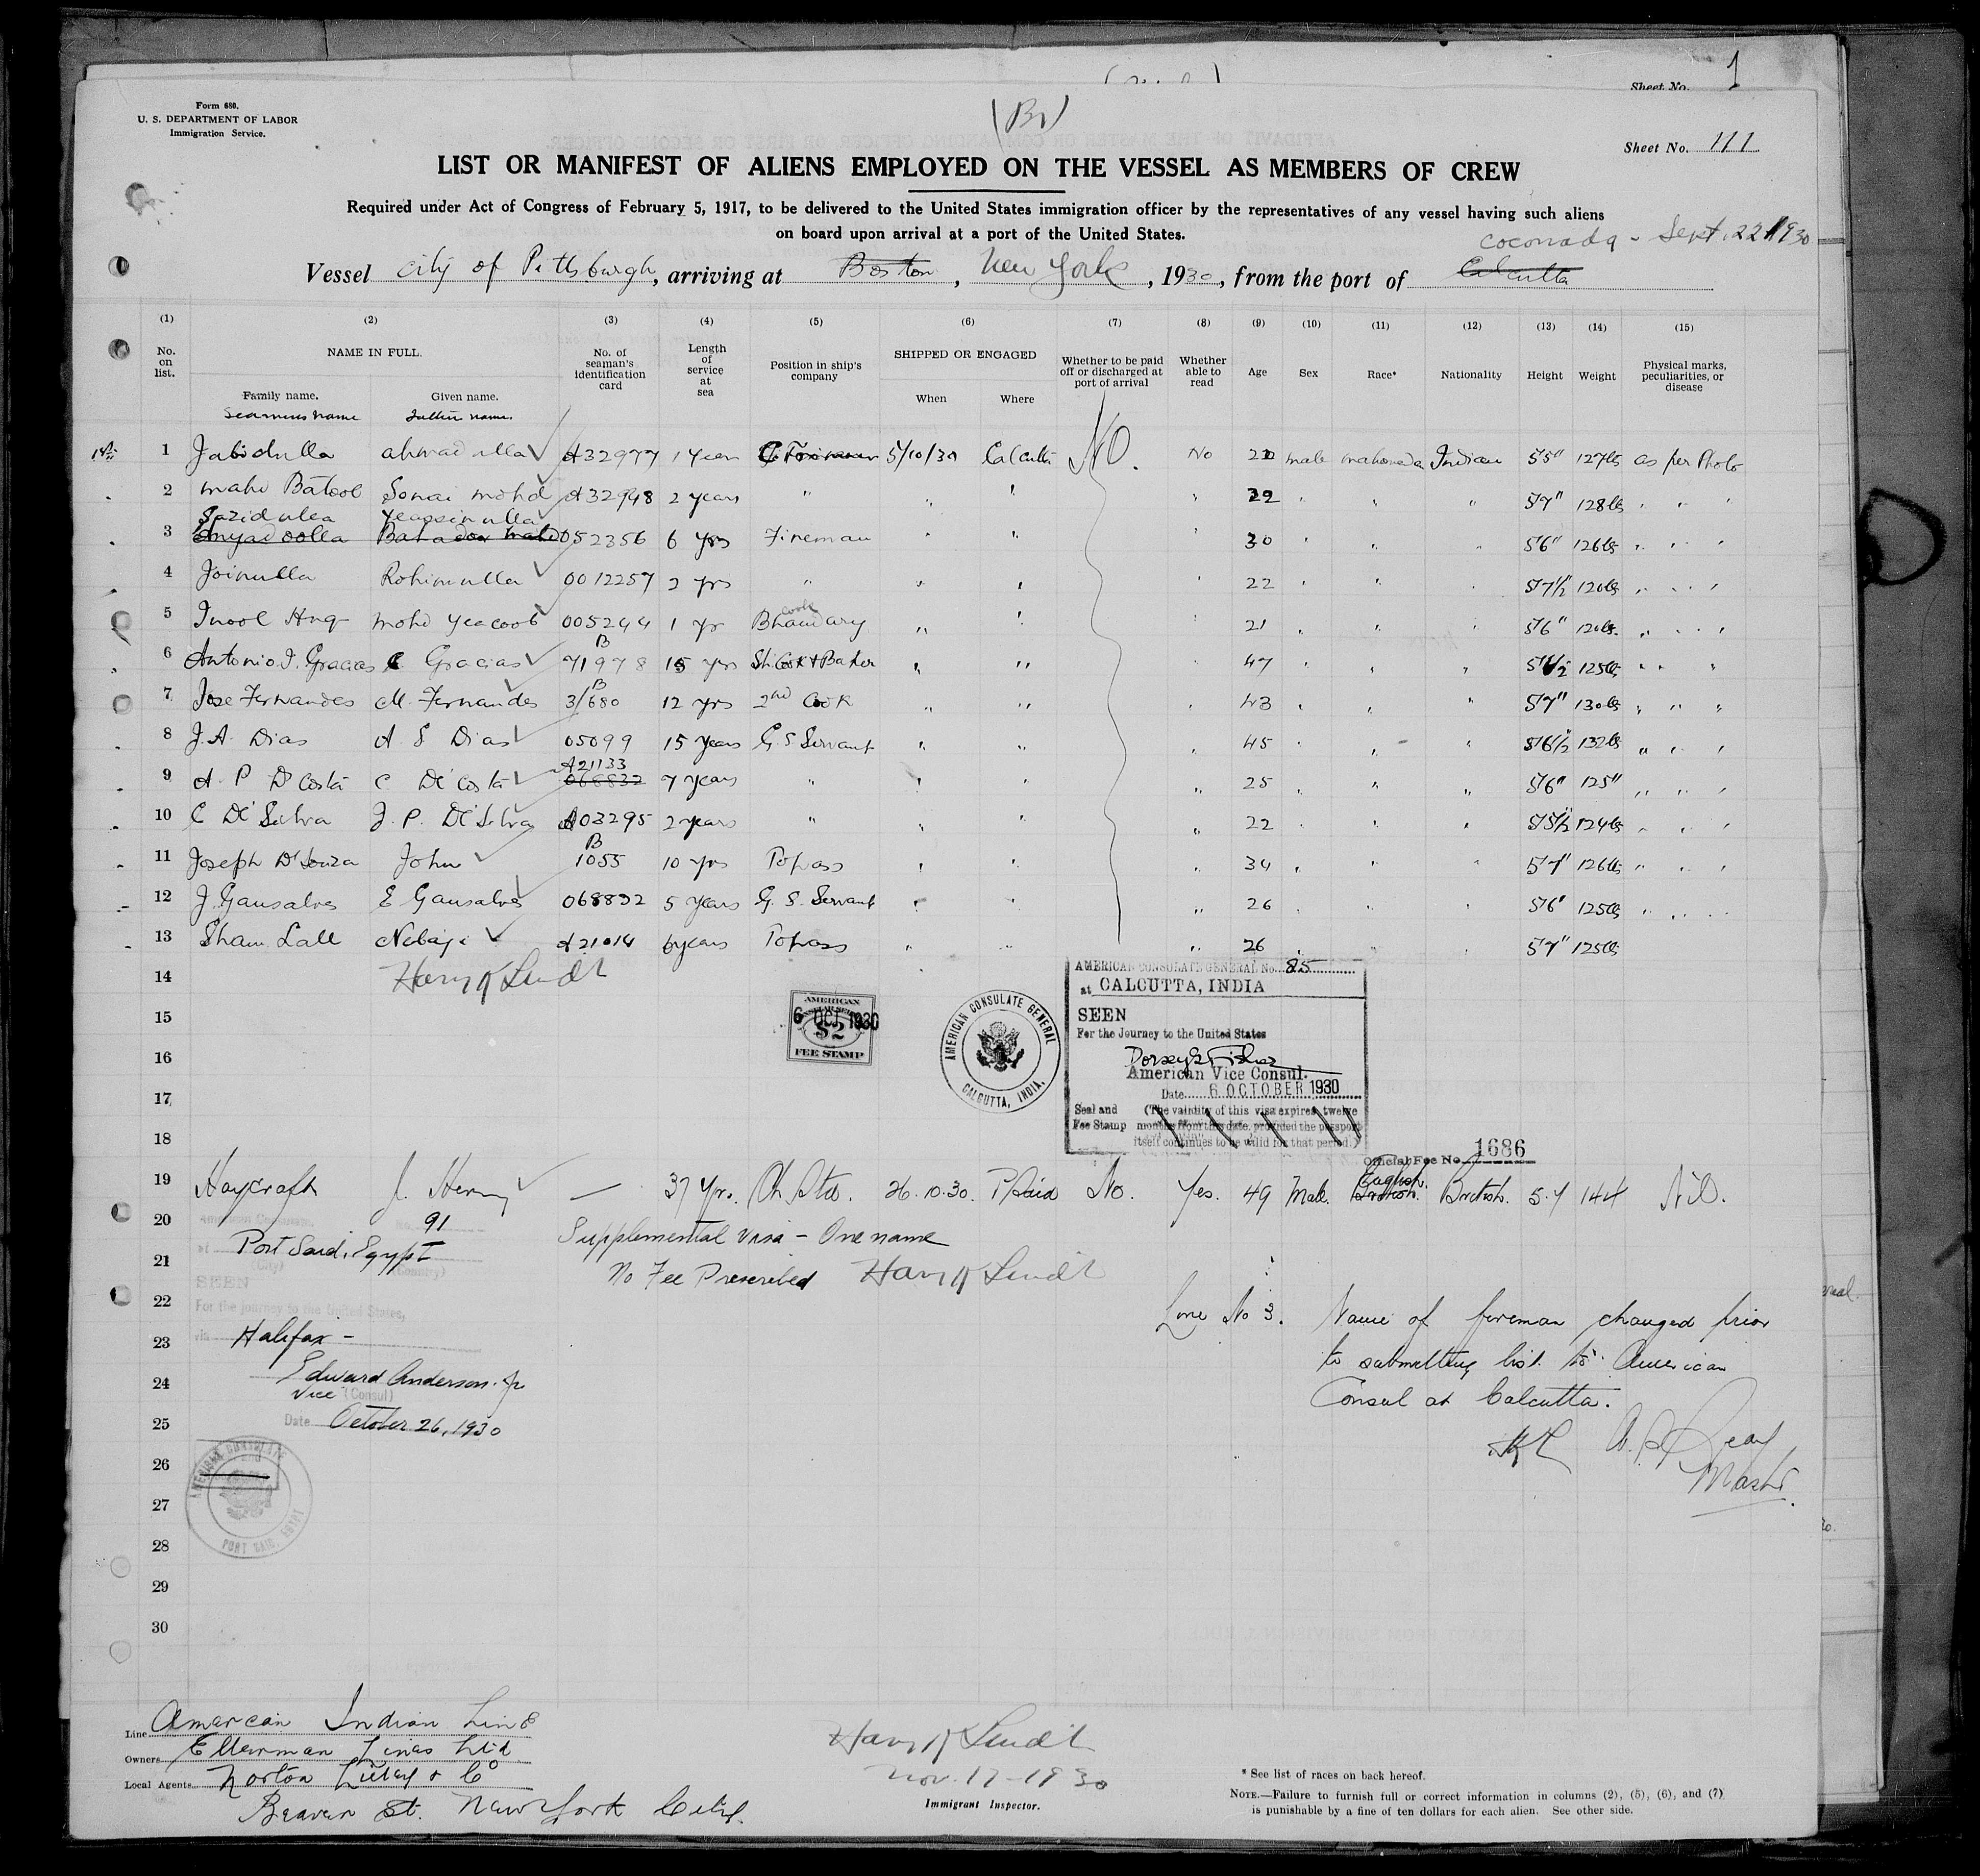 Sheet No. 1
Form 680.
U. S. DEPARTMENT OF LABOR
Immigration Service.
(Br)
Sheet No. 111
LIST OR MANIFEST OF ALIENS EMPLOYED ON THE VESSEL AS MEMBERS OF CREW
Required under Act of Congress of February 5, 1917, to be delivered to the United States immigration officer by the representatives of any vessel having such aliens
on board upon arrival at a port of the United States.
Coconada - Sept. 22 1930
Vessel City of Pittsburgh, arriving at Boston, New York, 1930, from the port of Calcutta
(1) (2) (3) (4) (5) (6) (7) (8) (9) (10) (11) (12) (13) (14) (15)
No. on list. NAME IN FULL. No. of seaman's identification card Length of service at sea Position in ship's company SHIPPED OR ENGAGED Whether to be paid off or discharged at port of arrival Whether able to read Age Sex Race* Nationality Height Weight Physical marks, peculiarities, or disease
Family name. Given name. When Where
Seamens name Father name.
1 Jabidulla ahmadulla A32977 1 year 5/10/30 Calcutta NO. No male Indian 5'5" 127lbs as per Photo
2 Sonai mohd A32948 2 years " 128lbs
Sazidulla Yeassinulla
3 052356 6 yrs Fireman 30 5'6" 126lbs
4 Joinulla Rohimulla 0012257 2 yrs " 22 5'7½" 120lbs
cook
5 mohd Yeacoob 005244 1 yr Bhandary 21 5'6" 120lbs.
B
6 Antonio J. Gracias Gracias 71978 15 yrs 47 125lbs
B
7 Jose Fernandes M. Fernandes 3/680 12 yrs 2nd Cook 43 5'7" 130lbs
8 J.A. Dias A S Dias 05099 15 years G.S Servant 45 5'6½ 132lbs
A21133
9 A. P D'Costa C D'Costa 068832 7 years " 25 5'6" 125"
10 C De'Silva J. P. De'Silva A03295 2 years " 22 5'5½" 124lbs
B
11 Joseph D'Souza John 1055 10 yrs Topass 34 5'7" 126lbs
12 J. Gansalves E Gansalves 068832 5 years G. S. Servant 26 5'6" 125lbs
13 Sham Lall Nebaji A21014 6 years Topass 26 5'7" 125lbs
14
15
16
17
18
AMERICAN
6 OCT 1930
$2
FEE STAMP
AMERICAN CONSULATE GENERAL
CALCUTTA, INDIA.
AMERICAN CONSULATE GENERAL No. 85
at CALCUTTA, INDIA
SEEN
For the Journey to the United States
American Vice Consul.
Date 6 OCTOBER 1930
Seal and Fee Stamp (The validity of this visa expires twelve
months from this date, provided the passport
itself continues to be valid for that period.)
Official Fee No. 1686
English
19 Haycraft J. Henry — 37 Yrs. Ch. Std. 26.10.30. P. Said No. Yes. 49 Male. British. 5.7 144 Nil.
20
American Consulate, No. 91
Supplemental visa - One name
at Port Said, Egypt
(City) (Country)
21
No Fee Prescribed
SEEN
22
For the journey to the United States,
23
via Halifax -
24
Edward Anderson. Jr
Vice (Consul)
25
Date October 26, 1930
26
27
28
29
30
AMERICAN CONSULATE
PORT SAID, EGYPT
Line No 3. Name of fireman changed prior
to submitting list to American
Consul at Calcutta.
Master.
Line American Indian Line
Owners Ellerman Lines Ltd
Local Agents Norton Lilley & Co
Beaver St. New York City.
Nov. 17-1930
Immigrant Inspector.
* See list of races on back hereof.
NOTE.—Failure to furnish full or correct information in columns (2), (5), (6), and (7)
is punishable by a fine of ten dollars for each alien. See other side.